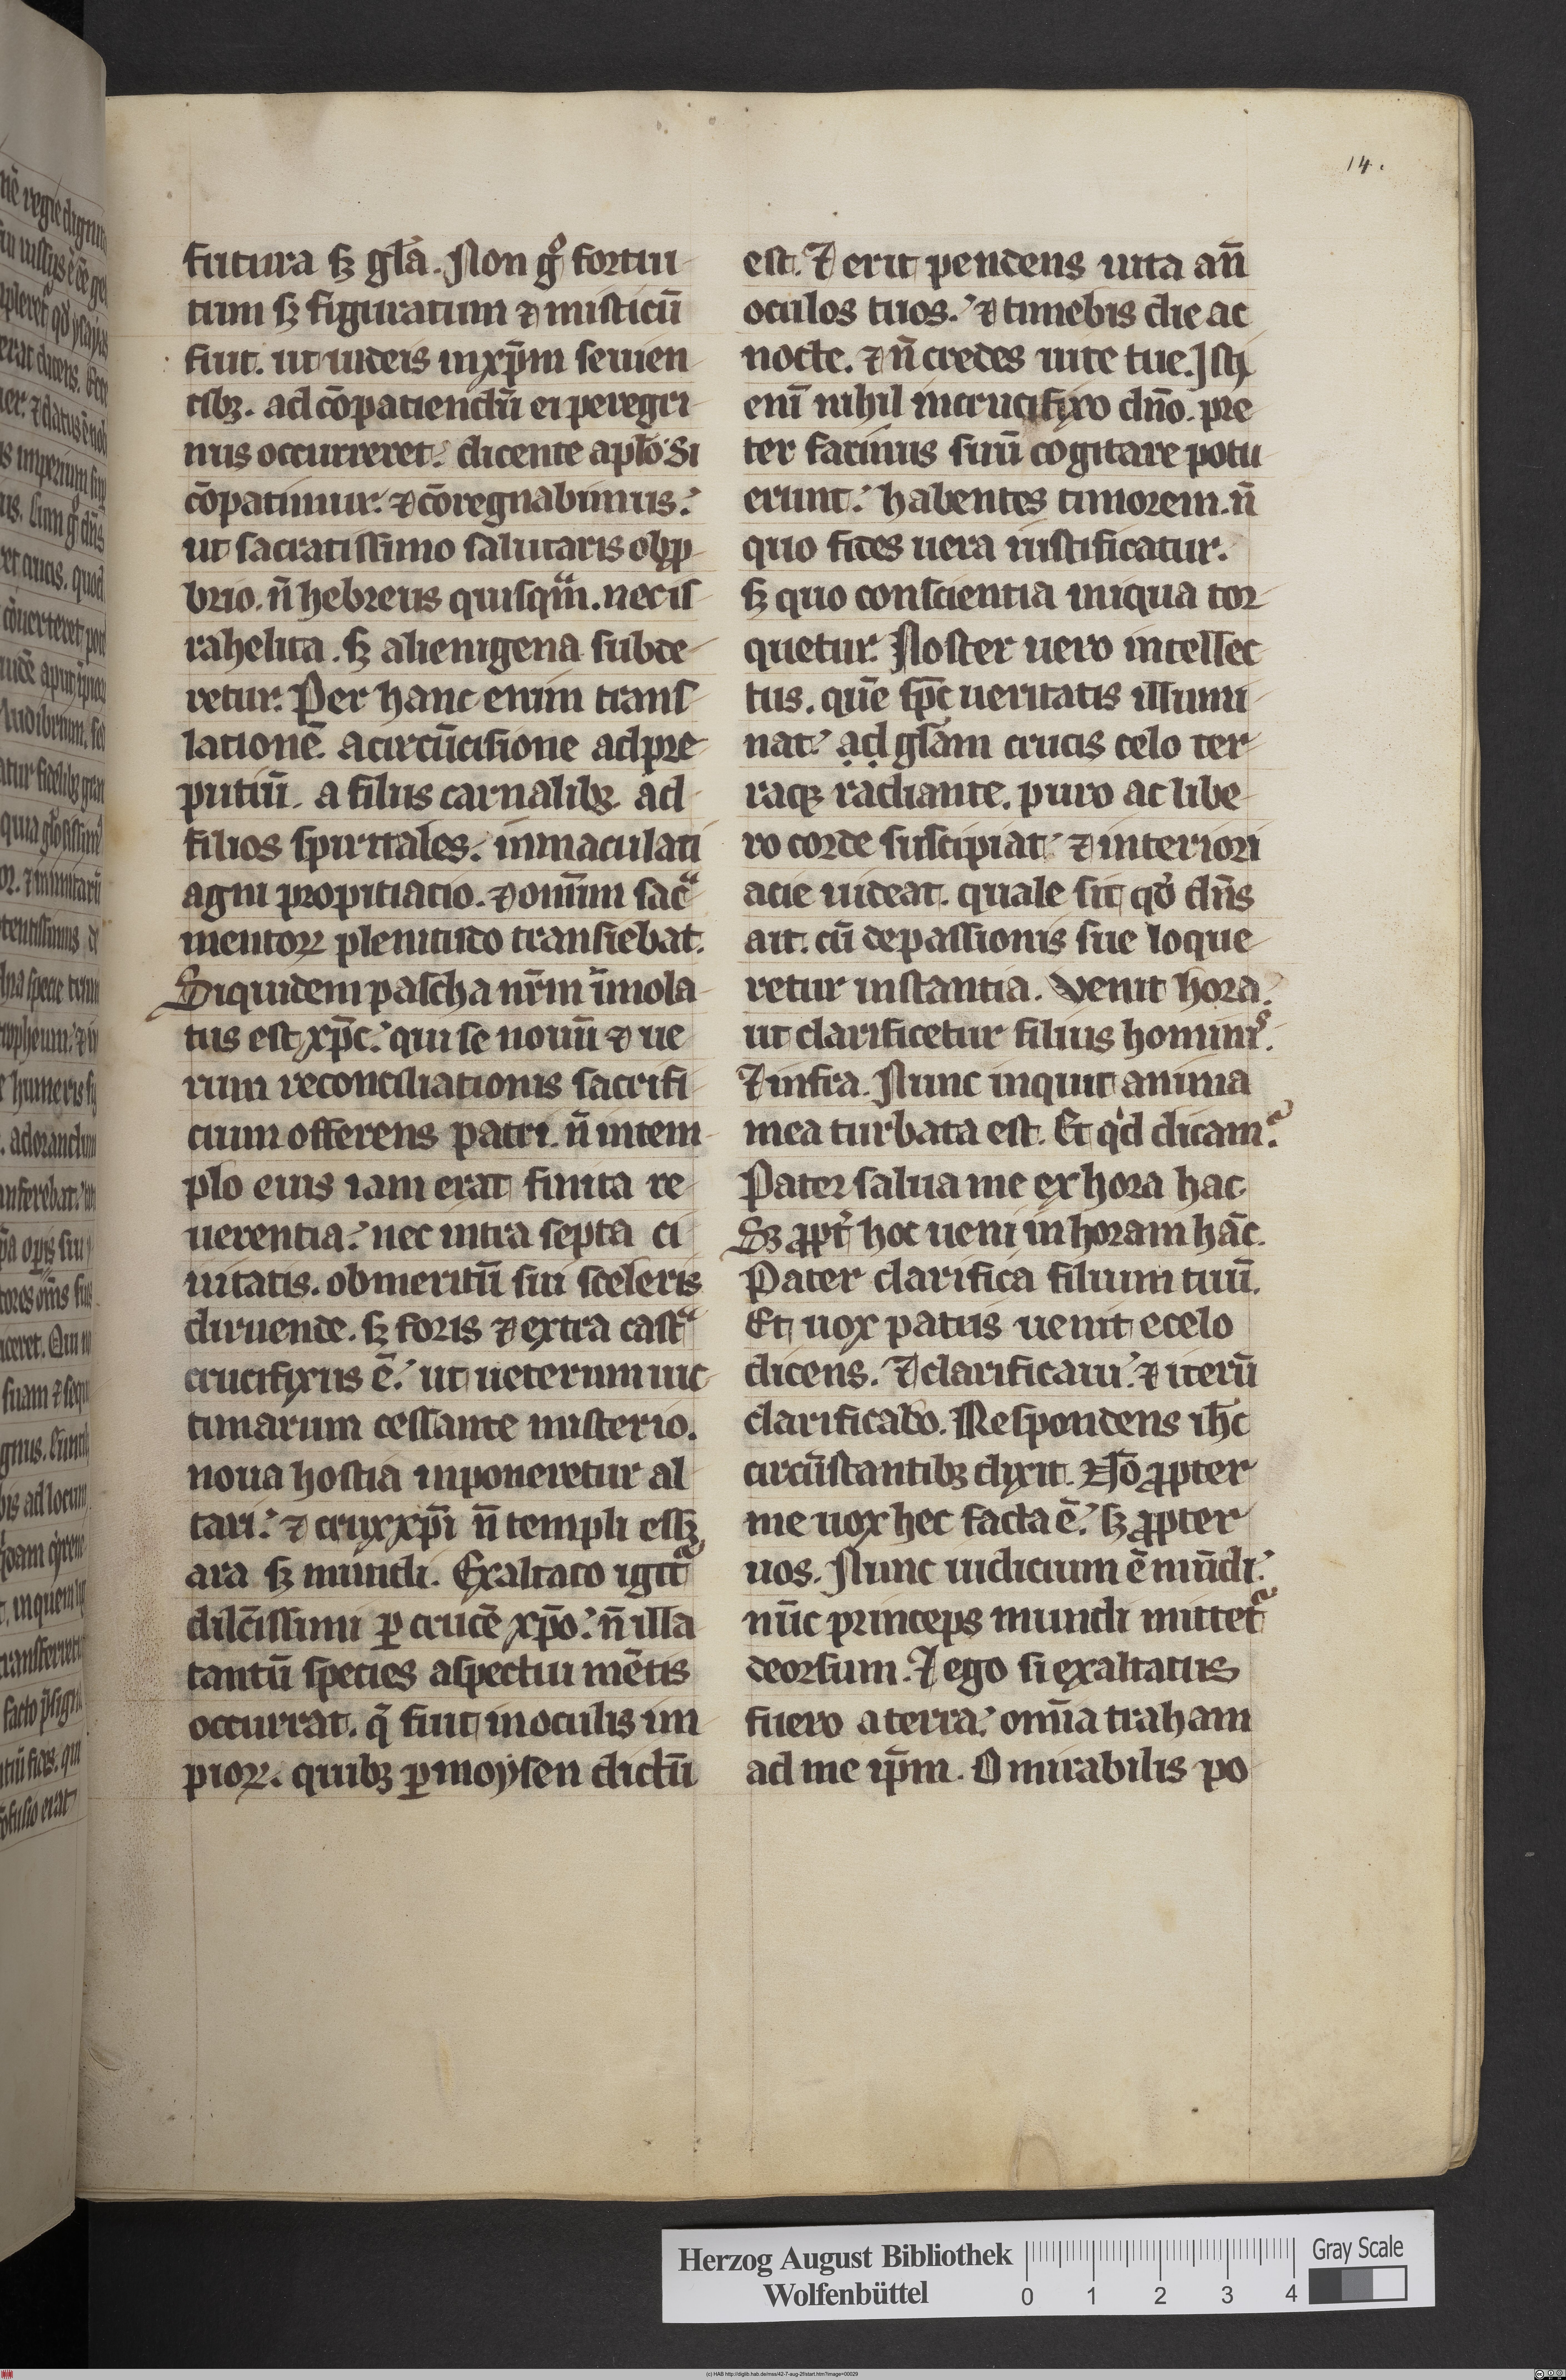 14.
futura sꝫ gl̄a. Non gͦ fortui
tum sꝫ figuratum ⁊ misticū
fuit. ut iudeis in xp̄m seuien
tibꝫ. ad cōpatiendū ei peregri
nus occurreret. dicente apl̄o. Si
cōpatimur. ⁊ cōregnabimus.
ut sacratissimo salutaris obꝓ
brio. n̄ hebreus quisqͣm. nec is
rahelita. sꝫ alienigena subde
retur. Per hanc enim trans
lationē. a circūcisione ad pre
putiū. a filiis carnalibꝫ ad
filios spiritales. inmaculati
agni propitiatio. ⁊ omīum sacͣ
mentoꝝ plenitudo transiebat.
Siquidem pascha nr̄m īmola
tus est xp̄c. qui se nouū ⁊ ue
rum reconciliationis sacrifi
cium offerens patri. n̄ in tem
plo cuius iam erat finita re
uerentia. nec intra septa ci
uitatis. ob meritū sui sceleris
diruende. sꝫ foris ⁊ extra castͣ
crucifixus ē. ut ueterum uic
timarum cessante misterio.
noua hostia inponeretur al
tari. ⁊ crux xp̄i n̄ templi essꝫ
ara sꝫ mundi. Exaltato igit᷑
dilc̄issimi ꝑ crucē xp̄o. n̄ illa
tantū species aspectui mētis
occurrat. q̄ fuit in oculis im
pioꝝ. quibꝫ ꝑ moysen dictū
est. ⁊ erit pendens uita an̄
oculos tuos. ⁊ timebis die ac
nocte. ⁊ n̄ credes uite tue. Isti
enī nihil in crucifixo dn̄o. pre
ter facinus suū cogitare potu
erunt. habentes timorem. n̄
quo fides uera iustificatur.
sꝫ quo conscientia iniqua tor
quetur. Noster uero intellec
tus. quē sp̄c ueritatis illumi
nat. ad gl̄am crucis celo ter
raqꝫ radiante. puro ac libe
ro corde suscipiat. ⁊ interiori
acie uideat. quale sit qd̓ dn̄s
ait. cū de passionis sue loque
retur instantia. Venit hora.
ut clarificetur filius hominis.
⁊ infra. Nunc inquit anima
mea turbata est. Et qͥd dicam.
Pater salua me ex hora hac
Sꝫ ꝓpt̓ hoc ueni in horam hāc.
Pater clarifica filium tuū.
Et uox patris uenit e celo
dicens. ⁊ clarificaui. ⁊ iterū
clarificabo. Respondens ih̄c
circūstantibꝫ dixit. Nō ꝓpter
me uox hec facta ē. sꝫ ꝓpter
uos. Nunc iudicium ē mūdi.
nūc princeps mundi mittet᷑
deorsum. ⁊ ego si exaltatus
fuero a terra. omīa traham
ad me ip̄m. O mirabilis po
Herzog August Bibliothek
Wolfenbüttel
0 1 2 3 4
Gray Scale
(c) HAB http://diglib.hab.de/mss/42-7-aug-2f/start.htm?image=00029